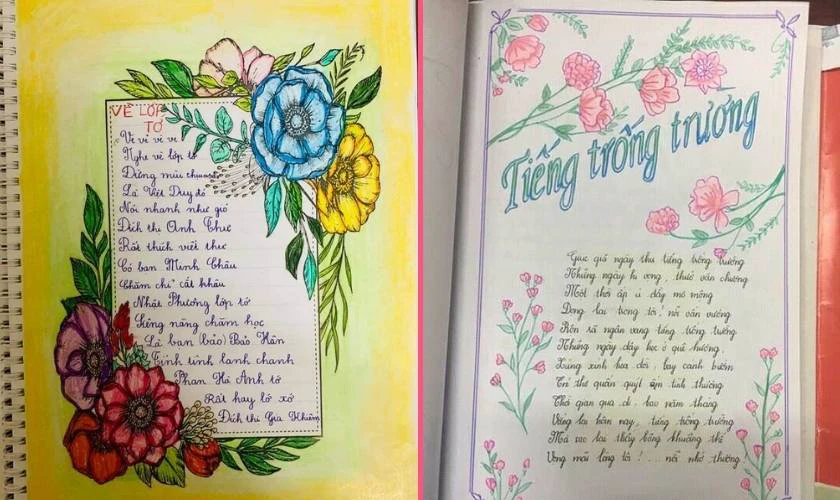 VÈ LỚP
TỚ
Ve vẻ vè ve
Nghe vè lớp tớ
Đứng mũi
Là Việt Duy đó
Nói nhanh như gió
Đích thị Anh Thư
Rất thích viết thư
Có bạn Minh Châu
Chăm chỉ cắt khâu
Nhất Phương lớp tớ
Siêng năng chăm học
Là bạn (bảo) Bảo Hân
Tính tình lanh chanh
Phan Hà Anh tớ
Rất hay lớ xớ
Đích thị Gia Khiêm
Tiếng trống trường
Giục giã ngày thu tiếng trống trường
Những ngày hi vọng, thuở văn chương
Một thời ấp ủ đầy mơ mộng
Đọng lại trong tôi! nỗi vấn vương
Rộn rã ngân vang tiếng trống trường
Những ngày dạy học ở quê hương
xinh hoa đỏ, bay cánh bướm
thơ quấn quýt tình thương
Thời gian qua đi, bao năm tháng
Vắng hôm nay, tiếng trống trường
Mà sao lại thấy bâng khuâng thế
Vọng mãi lòng tôi!... nỗi nhớ thương